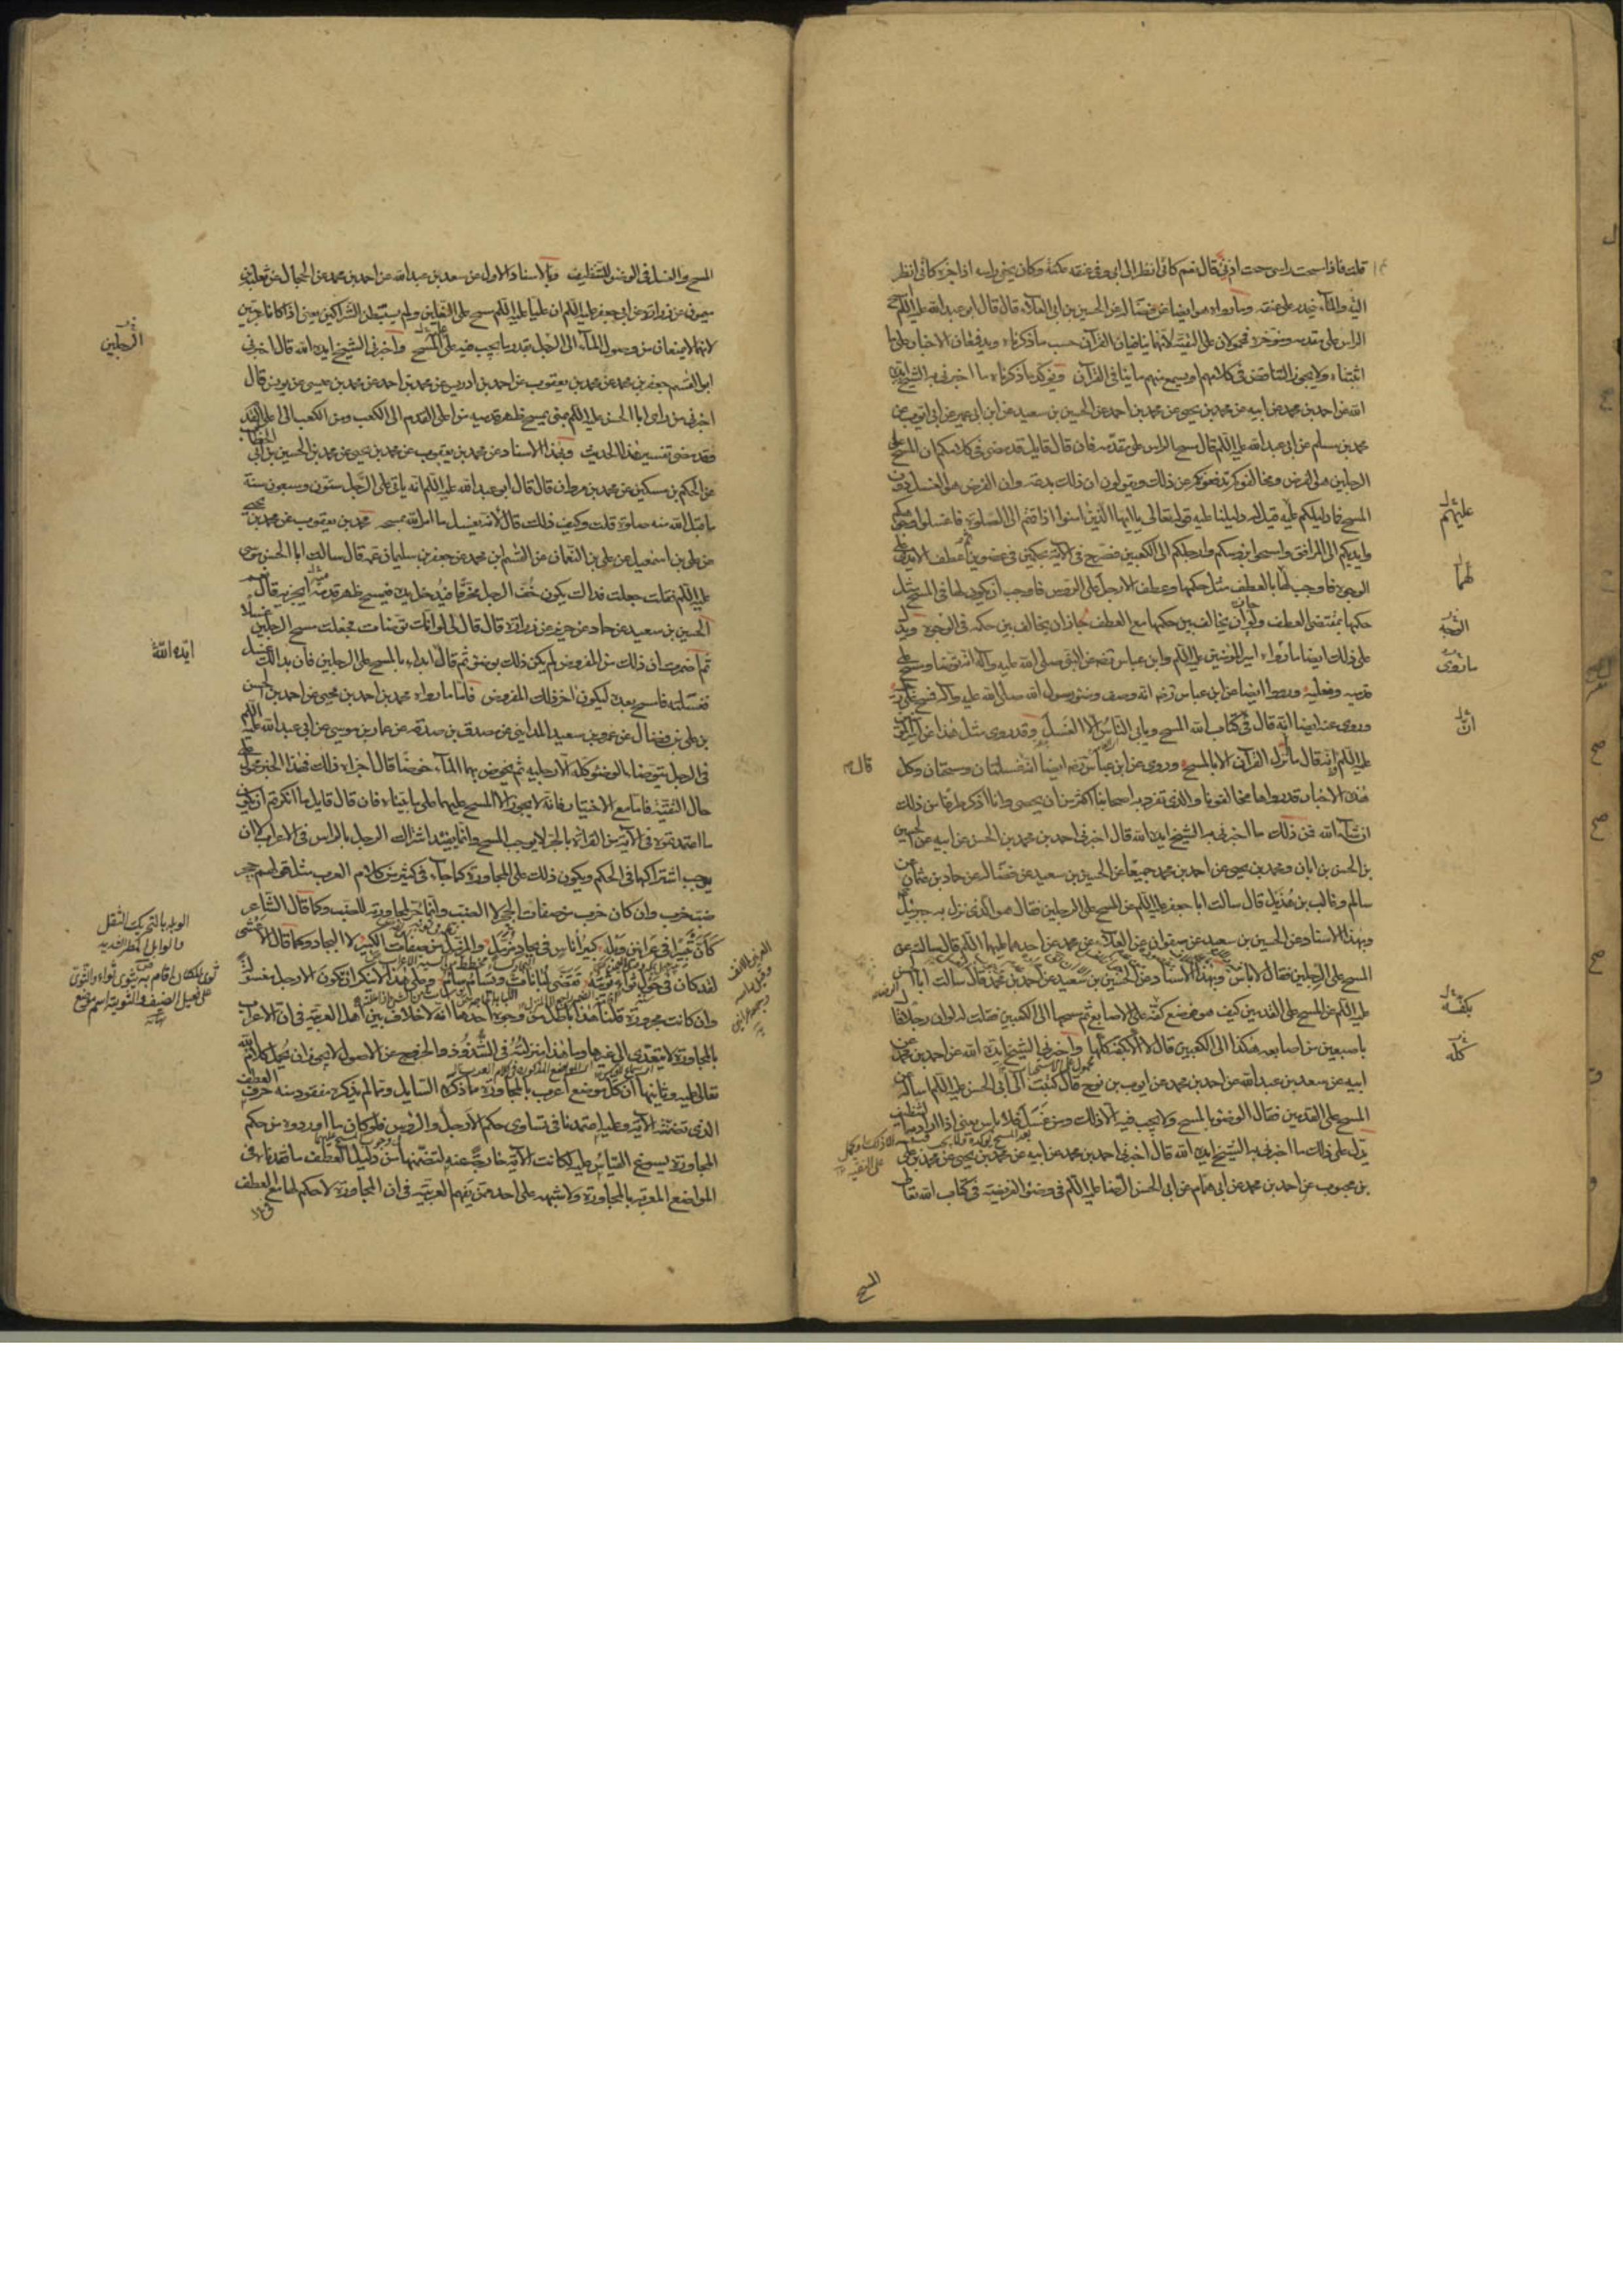 قلت فاذا مسحت راسى مسحت اذنى قال نعم كانى انظر الى ابى وفى عنقه عكنة وكان يحفى راسه اذا جزه كانى انظر
اليه والماء ينحدر على عنقه وما رواه ايضا عن فضالة عن الحسين بن ابى العلاء قال قال ابو عبد الله عليه السلم امسح
الراس على مقدمه ومؤخره فمحمولان على التقية لانهما ينافيان القرآن حسب ما ذكرناه ويدفعان الاخبار على ما
اثبتناه ولا يجوز التناقض فى كلامهم او يسمع منهم ما ينافى القرآن ويؤكد ما ذكرناه ما اخبرنى به الشيخ ايده
الله عن احمد بن محمد عن ابيه عن محمد بن يحيى عن محمد بن احمد عن الحسين بن سعيد عن ابن ابى عمير عن ابى ايوب عن
محمد بن مسلم عن ابى عبد الله عليه السلم قال مسح الراس على مقدمه فان قال قايل قد مضى فى كلامكم ان المسح على
الرجلين هو الفرض ومخالفوكم يدفعونكم عن ذلك ويقولون ان ذلك بدعة وان الفرض هو الغسل دون
المسح فما دليلكم عليه قيل له دليلنا عليه قوله تعالى يا ايها الذين امنوا اذا قمتم الى الصلوة فاغسلوا وجوهكم
وايديكم الى المرافق وامسحوا برؤسكم وارجلكم الى الكعبين فصرح فى الآية بحكمين فى عضوين ثم عطف الايدى على
الوجوه فاوجب لها بالعطف مثل حكمها وعطف الارجل على الرؤس فواجب ان يكون لها فى المسح مثل
حكمها بمقتضى العطف ولو جاز ان يخالف بين حكمها مع العطف لجاز ان يخالف بين حكمه فى الوجوه ويدل
على ذلك ايضا ما رواه امير المؤمنين عليه السلم وابن عباس رضه عن النبى صلى الله عليه وآله انه توضا ومسح على
قدميه ونعليه ورووا ايضا عن ابن عباس رضه انه وصف وضوء رسول الله صلى الله عليه وآله فمسح على رجليه
وروى عنه ايضا انه قال فى كتاب الله المسح ويابى الناس الا الغسل وقد روى مثل هذا عن امير المؤمنين
عليه السلم وانه قال ما نزل القرآن الا بالمسح وروى عن ابن عباس رضه ايضا انه غسلتان ومسحتان وكل
هذه الاخبار قد رواها مخالفونا والذى تفرد به اصحابنا اكثر من ان يحصى وانا اذكر طرفا من ذلك
ان شاء الله فمن ذلك ما اخبرنى به الشيخ ايده الله قال اخبرنى احمد بن محمد بن الحسن عن ابيه عن الحسين
بن الحسن بن ابان ومحمد بن يحيى عن احمد بن محمد جميعا عن الحسين بن سعيد عن فضالة عن حماد بن عثمان عن
سالم وغالب بن هذيل قال سالت ابا جعفر عليه السلم عن المسح على الرجلين فقال هو الذى نزل به جبرئيل
وبهذا الاسناد عن الحسين بن سعيد عن صفوان عن العلاء عن محمد عن احدهما عليهما السلم قال سالته عن
المسح على الرجلين فقال لا باس وبهذا الاسناد عن الحسين بن سعيد عن احمد بن محمد قال سالت ابا الحسن
عليه السلم عن المسح على القدمين كيف هو فوضع كفه على الاصابع ثم مسحها الى الكعبين فقلت له لو ان رجلا قال
باصبعين من اصابعه هكذا الى الكعبين قال لا الا بكفه كلها واخبرنى الشيخ ايده الله عن احمد بن محمد عن
ابيه عن سعد بن عبد الله عن احمد بن محمد عن ايوب بن نوح قال كتبت الى ابى الحسن عليه السلم اساله عن
المسح على القدمين فقال الوضوء بالمسح ولا يجب فيه الا ذلك ومن غسل فلا باس يعنى اذا اراد به التنظيف
يدل على ذلك ما اخبرنى به الشيخ ايده الله قال اخبرنى احمد بن محمد عن ابيه عن محمد بن يحيى عن محمد بن على
بن محبوب عن احمد بن محمد عن ابى همام عن ابى الحسن الرضا عليه السلم فى وضوء الفريضة فى كتاب الله تعالى
المسح
عليهم
لهما
ان
بكفه
كله
قال
المسح والغسل فى الوضوء للتنظيف وبالاسناد الاول عن سعد بن عبد الله عن احمد بن محمد عن الحجال عن ثعلبة بن
ميمون عن زرارة عن ابى جعفر عليه السلم ان عليا عليه السلم مسح على النعلين ولم يستبطن الشراكين يعنى اذا كانا عربيين
لانهما لا يمنعان من وصول الماء الى الرجل بقدر ما يجب فيه عليه المسح واخبرنى الشيخ ايده الله قال اخبرنى
ابو القسم جعفر بن محمد عن محمد بن يعقوب عن احمد بن ادريس عن محمد بن احمد عن محمد بن عيسى عن يونس قال
اخبرنى من راى ابا الحسن عليه السلم بمنى يمسح ظهر قدميه من اعلى القدم الى الكعب ومن الكعب الى اعلى القدم
وقد مضى تفسير هذا الحديث وبهذا الاسناد عن محمد بن يعقوب عن محمد بن يحيى عن محمد بن الحسين بن ابى الخطاب
عن الحكم بن مسكين عن محمد بن مروان قال قال ابو عبد الله عليه السلم انه ياتى على الرجل ستون وسبعون سنة
ما قبل الله منه صلوة قلت وكيف ذلك قال لانه يغسل ما امر الله بمسحه محمد بن يعقوب عن محمد بن يحيى
عن على بن اسمعيل عن على بن النعمان عن القسم بن محمد عن جعفر بن سليمان عمه قال سالت ابا الحسن موسى
عليه السلم فقلت جعلت فداك يكون خف الرجل مخرقا فيدخل يده فيمسح ظهر قدمه ايجزيه قال نعم
الحسين بن سعيد عن حماد عن حريز عن زرارة قال قال لى لو انك توضات فجعلت مسح الرجلين غسلا
ثم اضمرت ان ذلك من المفروض لم يكن ذلك بوضوء ثم قال ابدا بالمسح على الرجلين فان بدا لك غسل
فغسلته فامسح بعده ليكون اخر ذلك المفروض فاما ما رواه محمد بن احمد بن يحيى عن احمد بن الحسن
بن على بن فضال عن عمرو بن سعيد المداينى عن مصدق بن صدقة عن عمار بن موسى عن ابى عبد الله عليه السلم
فى الرجل يتوضا الوضوء كله الا رجليه ثم يخوض بهما الماء خوضا قال اجزاه ذلك فهذا الخبر محمول على
حال التقية فاما مع الاختيار فانه لا يجوز الا المسح عليهما على ما بيناه فان قال قايل ما انكرتم ان يكون
ما اعتمدتموه فى الآية من القراءة بالجر لا يوجب المسح وانما يفيد اشتراك الرجل بالراس فى الاعراب لا ان
يوجب اشتراكهما فى الحكم ويكون ذلك على المجاورة كما جاء فى كثير من كلام العرب مثل قولهم جحر
ضب خرب وان كان خرب من صفات الجحر لا الضب وانما جر لمجاورته للضب وكما قال الشاعر
كان ثبيرا فى عرانين وبله كبير اناس فى بجاد مزمل والمزمل من صفات الكبير لا البجاد وكما قال الاعشى
لقد كان فى حول ثواء ثويته تقضى لبانات ويسام سائم وعلى هذا لا ينكر ان تكون الارجل مغسولة
وان كانت مجرورة قلنا هذا باطل من وجوه احدها انه لا خلاف بين اهل العربية فى ان الاعراب
بالمجاورة لا يتعدى الى غيرها وما هذا منزلته فى الشذوذ والخروج عن الاصول لا يجوز ان يحمل كلام الله
تعالى عليه وثانيها ان كل موضع اعرب بالمجاورة ما ذكره السايل وما لم يذكره مفقود منه حرف العطف
الذى تضمنته الآية وعليه اعتمدنا فى تساوى حكم الارجل والرؤس فلو كان ما اوردوه من حكم
المجاورة يسوغ القياس عليه لكانت الآية خارجة عنه لتضمنها من دليل العطف ما فقدناه فى
المواضع المعربة بالمجاورة ولا شبهة على احد ممن يفهم العربية فى ان المجاورة لا حكم لها مع العطف
الرجلين
ايده الله
الوبل بالتحريك الثقل
والوابل المطر الشديد